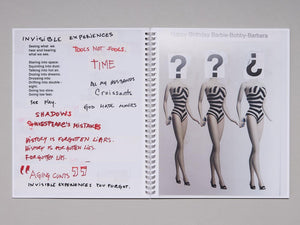 INVISIBLE EXPERIENCES
Seeing what we
hear and hearing
what we see.
Staring into space:
Squinting into dust:
Talking into hot air.
Dozing into dreams.
Diving into double-
trouble.
Going too slow.
Going too fast.
See Play.
TOOLS NOT JOOLS.
TIME
ALL MY HUSBANDS
Croissants
GOD HATE MOVIES
SHADOWS
SHAKESPEARE'S MISTAKES
HISTORY IS FORGOTTEN LIARS.
HISTORY IS FORGOTTEN LIES.
FORGOTTEN LIES.
"AGING CUNTS"
INVISIBLE EXPERIENCES YOU FORGOT.
Happy Birthday Barbie-Bobby-Barbara
? ? ?